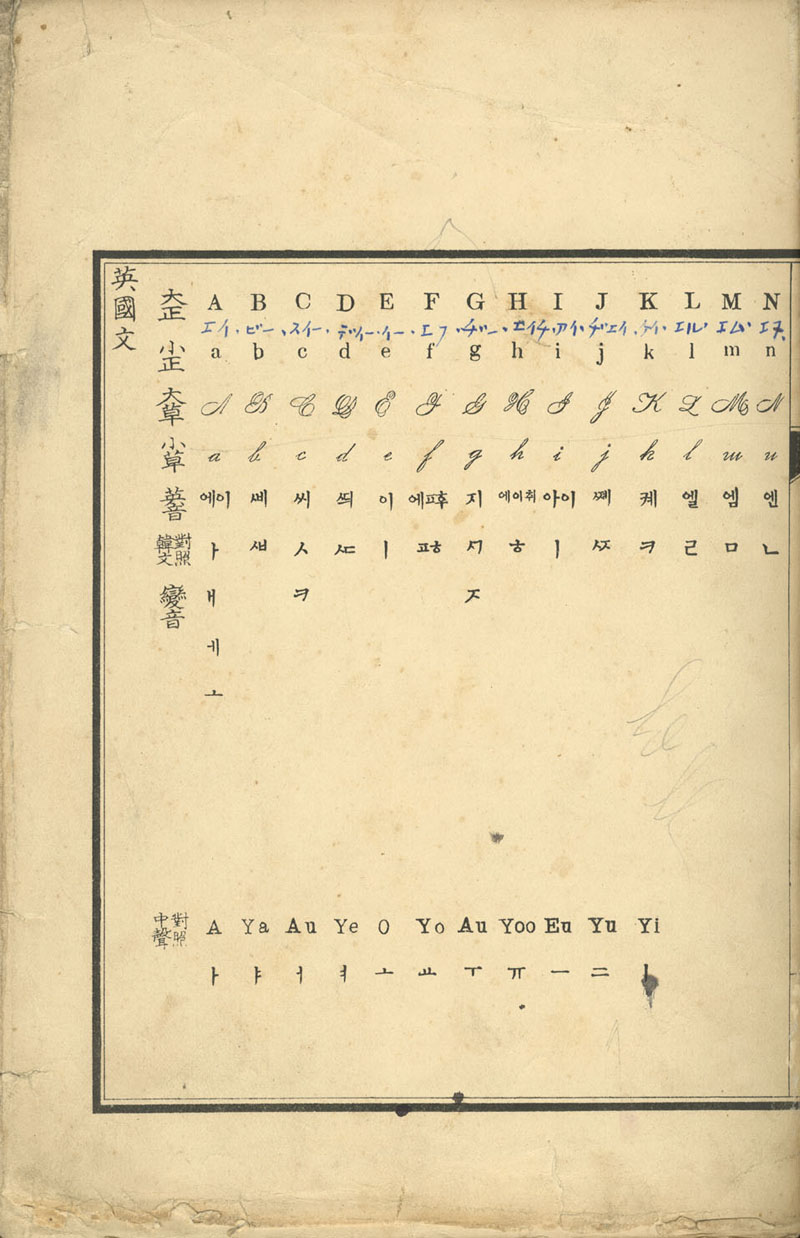 英國文
大歪 A B C D E F G H I J K L M N
エイ・ビー・スイー・デツー・イー・エフ・チヅー・エイチ・アイ・ヂエイ・ケイ・エル・エム・エヌ
小歪 a b c d e f g h i j k l m n
大草 A B C D E F G H I J K L M N
小草 a b c d e f g h i j k l m n
英音 에이 ᄲᅦ 씨 ᄯᅴ 이 에ퟱ 지 에이취 아이 ᄶᅦ 케 엘 엠 엔
韓文對照 ㅏ ㅽ ㅅ ㅼ ㅣ ㆄ ㅺ ㅎ ㅣ ㅾ ㅋ ㄹ ㅁ ㄴ
變音 ㅐ ㅋ ㅈ
ㅔ
ㅗ
中聲對照 A Ya Au Ye O Yo Au Yoo Eu Yu Yi
ㅏ ㅑ ㅓ ㅕ ㅗ ㅛ ㅜ ㅠ ㅡ ᆖ ㅣ